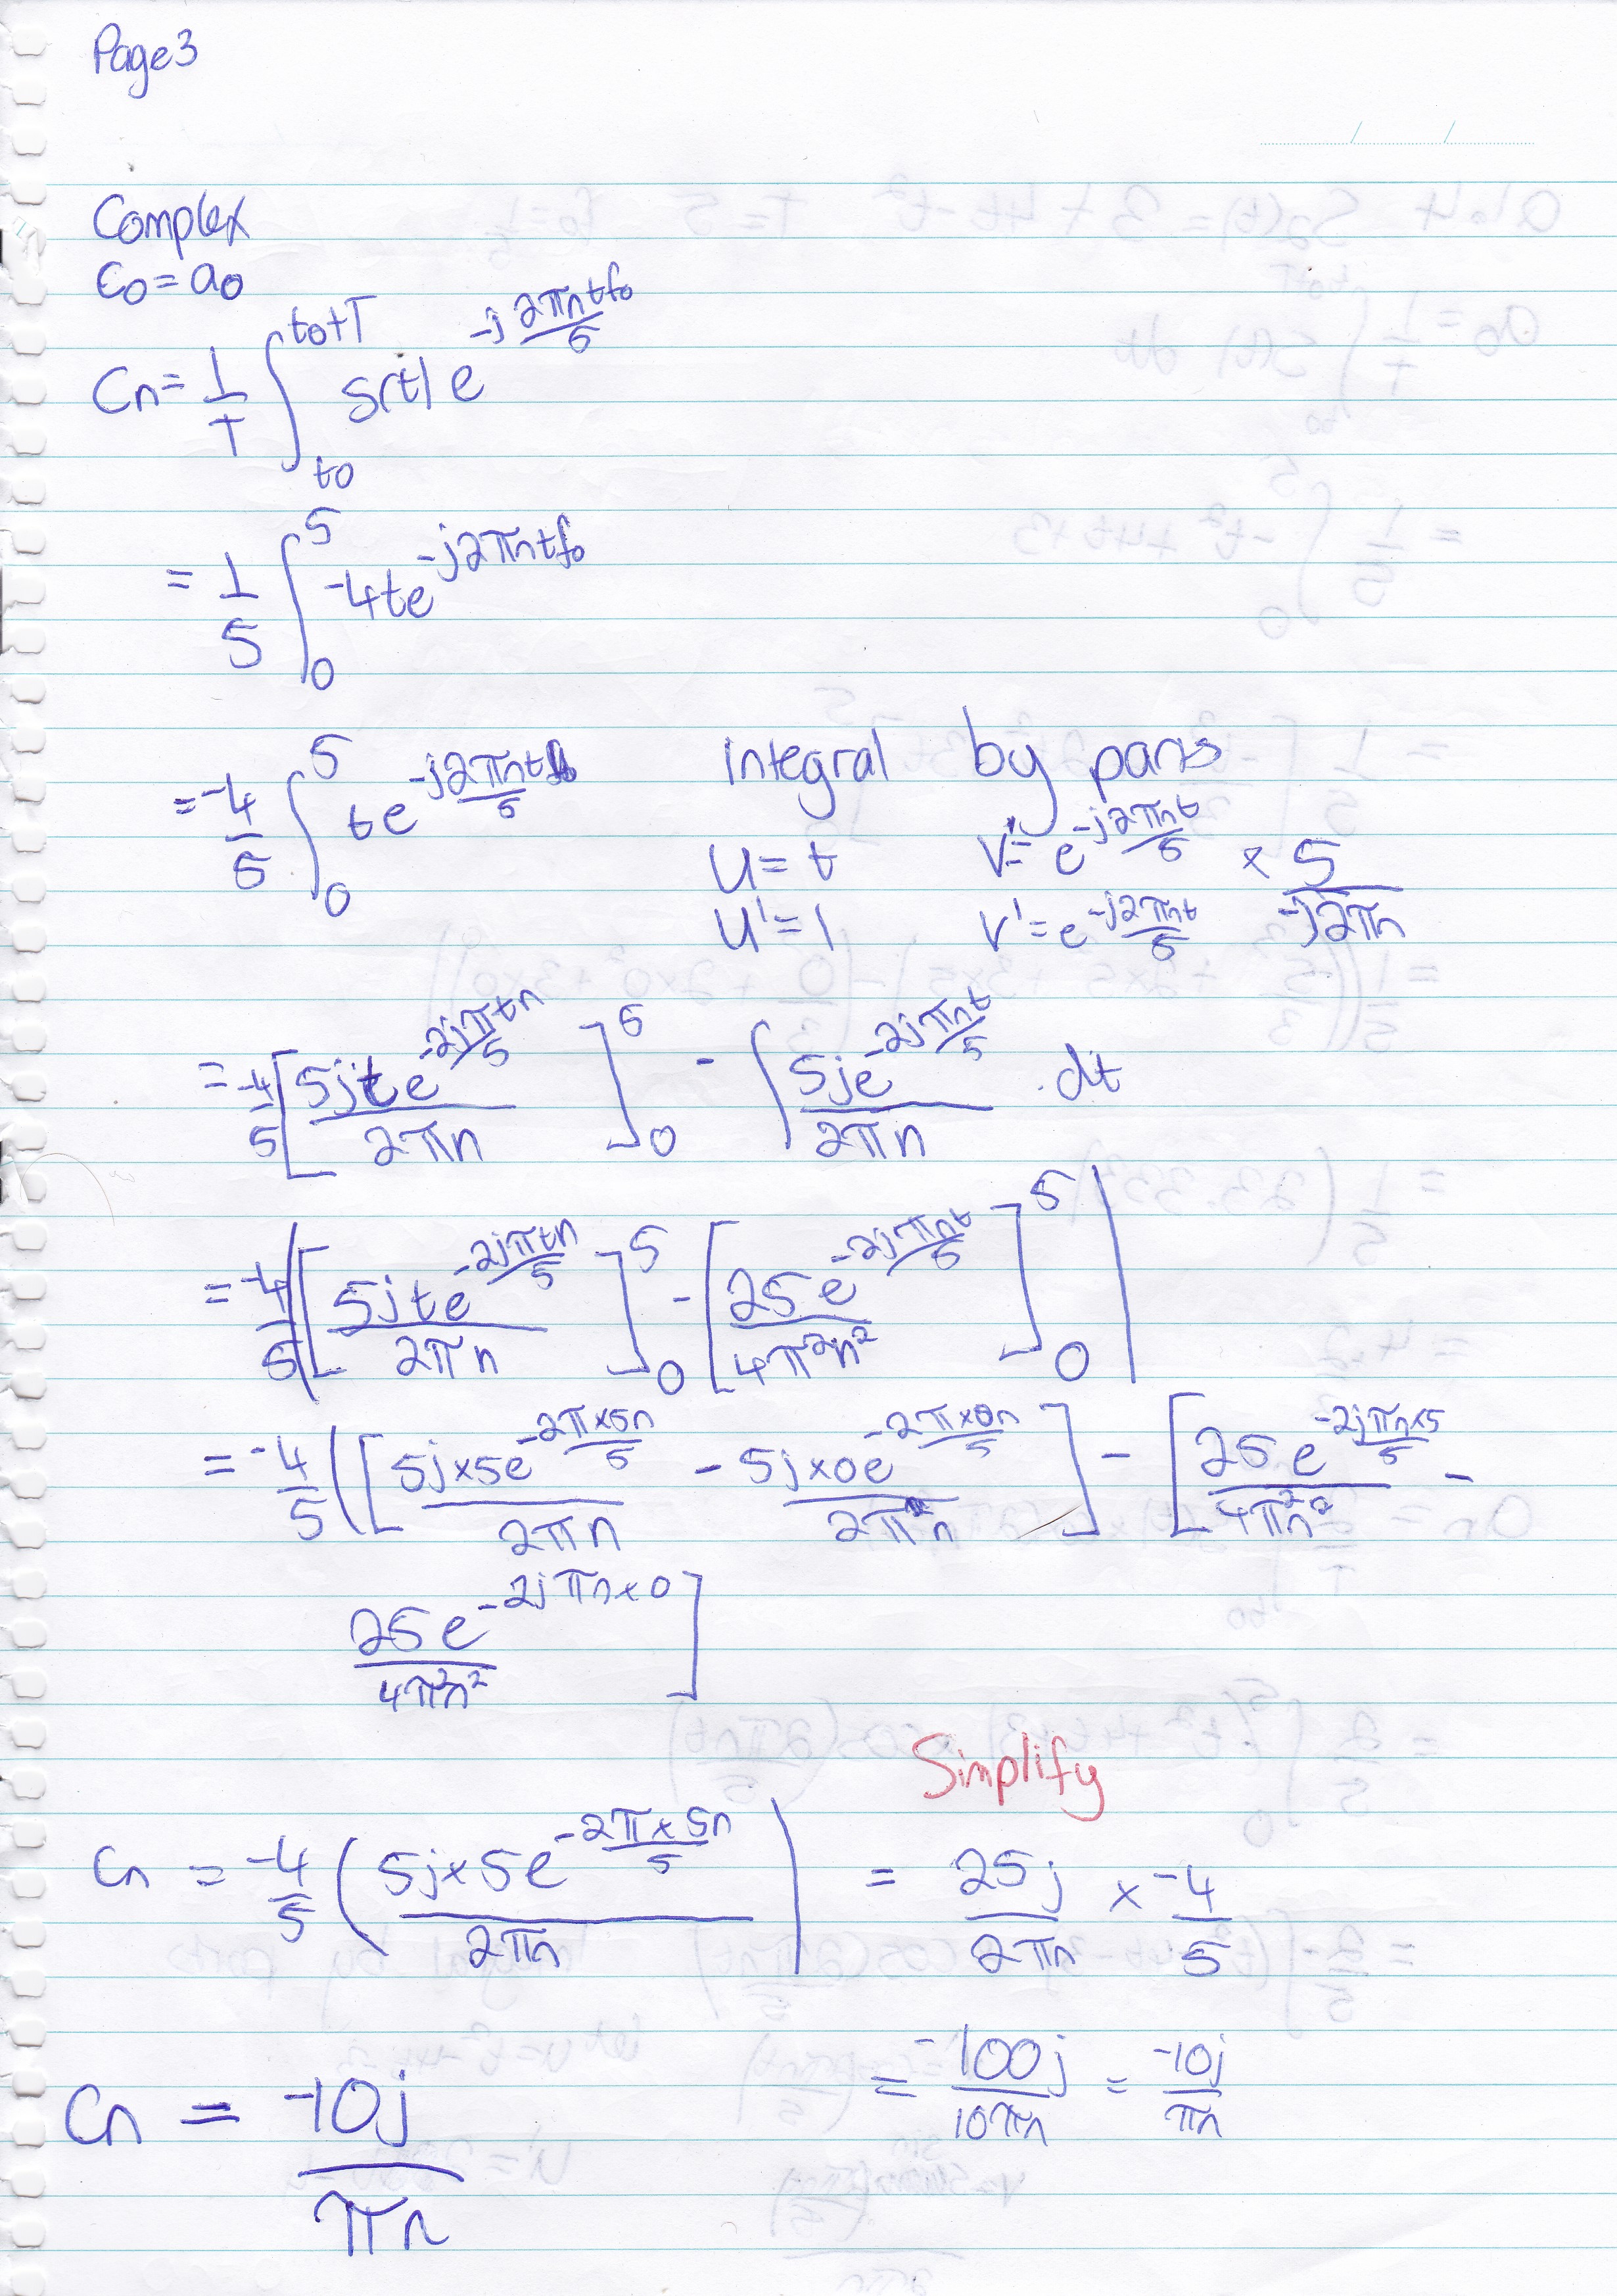 Page 3
Complex
C₀ = a₀
Cn = 1/T ∫_{t0}^{t0+T} s(t) e^{-j 2πntf₀/5}
= 1/5 ∫_0^5 -4te^{-j2πntf₀}
= -4/5 ∫_0^5 te^{-j2πnt/5} integral by parts
u = t v = e^{-j2πnt/5} × 5/-j2πn
u' = 1 v' = e^{-j2πnt/5}
= -4/5 [5jte^{-2jπtn/5} / 2πn]_0^5 - ∫ 5je^{-2jπnt/5} / 2πn . dt
= -4/5 ([5jte^{-2jπtn/5} / 2πn]_0^5 - [25e^{-2jπnt/5} / 4π²n²]_0^5)
= -4/5 ([5j×5e^{-2π×5n/5} / 2πn - 5j×0e^{-2π×0n/5} / 2πn] - [25e^{-2jπn×5/5} / 4π²n² -
25e^{-2jπn×0} / 4π²n²]
Simplify
Cn = -4/5 (5j×5e^{-2π×5n/5} / 2πn) = 25j/2πn × -4/5
= -100j/10πn = -10j/πn
Cn = -10j/πn